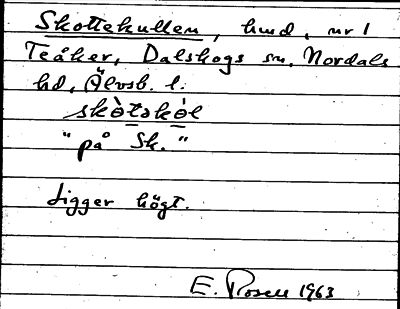 Skottekullen, hmd, nr 1
Teåker, Dalskogs sn, Nordals
hd, Älvsb. l.
skòtskòl
"på Sk."
Ligger högt.
E. Rosell 1963